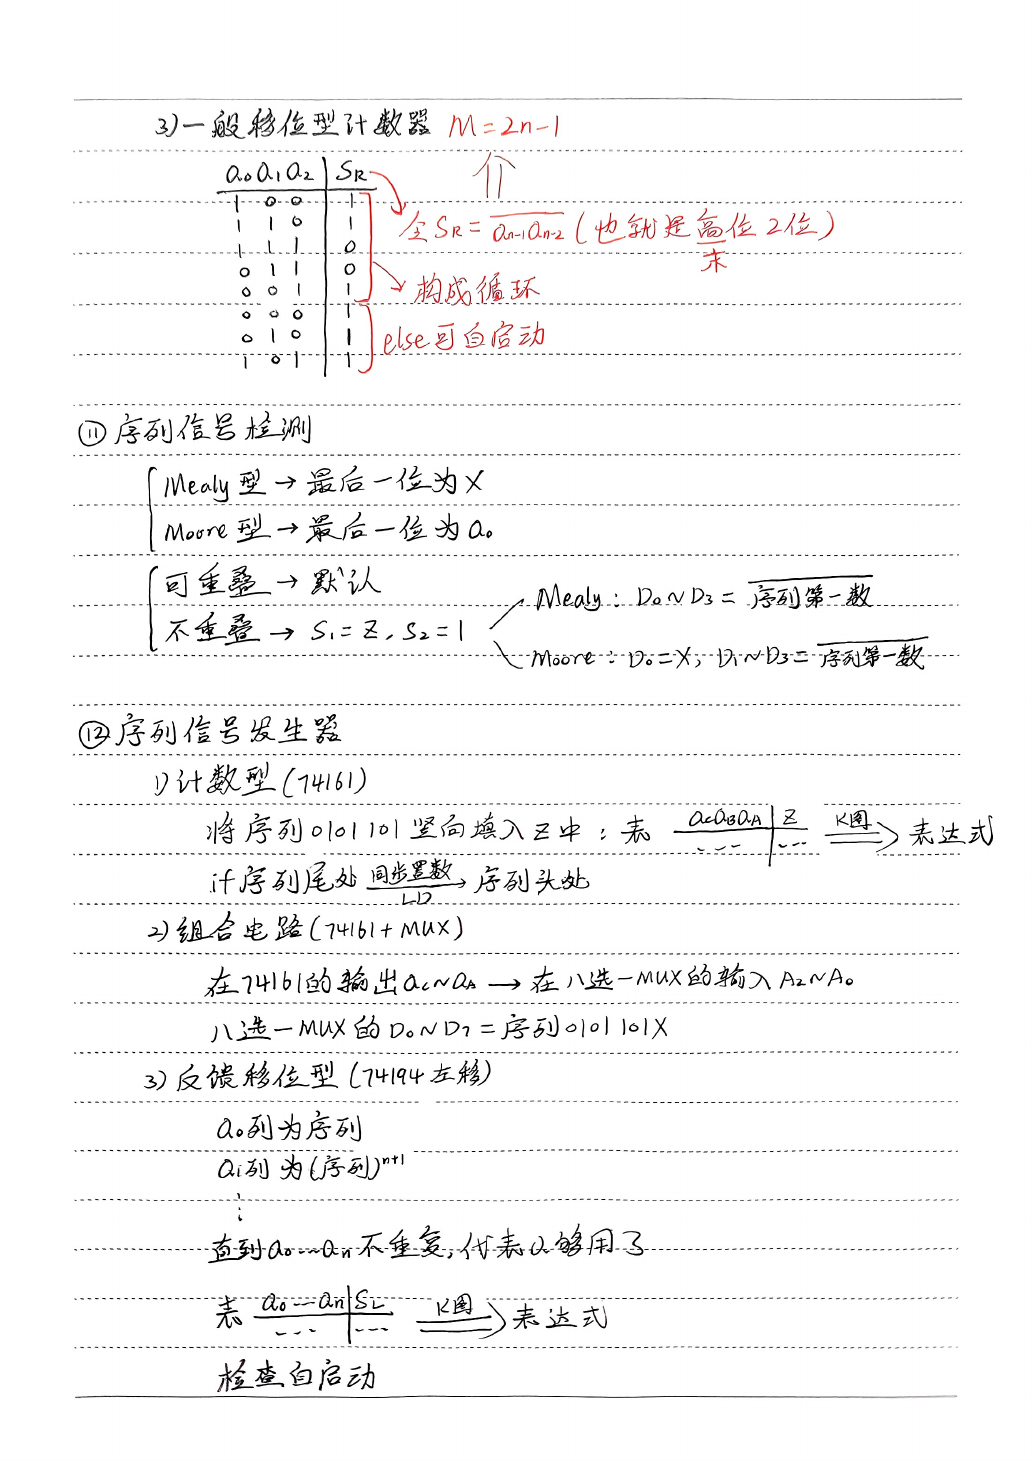 3) 一般移位型计数器 M=2n-1
Q₀Q₁Q₂ | S_R
1 0 0 | 1
1 1 0 | 1
1 1 1 | 0
0 1 1 | 0
0 0 1 | 1
0 0 0 | 1
0 1 0 | 1
1 0 1 | 1
令 S_R = \overline{Q_{n-1}Q_{n-2}} (也就是高位2位)
末
构成循环
else可自启动
⑪ 序列信号检测
Mealy型 → 最后一位为X
Moore型 → 最后一位为Q₀
可重叠 → 默认
不重叠 → S₁=Z, S₂=1
Mealy: D₀~D₃ = \overline{序列第一数}
Moore: D₀=X, D₁~D₃ = \overline{序列第一数}
⑫ 序列信号发生器
1) 计数型 (74161)
将序列0101101竖向填入Z中: 表 Q_CQ_BQ_A | Z K图 ⇒ 表达式
--- | ---
if序列尾处 同步置数 → 序列头处
LD
2) 组合电路 (74161+MUX)
在74161的输出Q_C~Q_A → 在八选一MUX的输入A₂~A₀
八选一MUX的D₀~D₇=序列0101101X
3) 反馈移位型 (74194左移)
Q₀列为序列
Q₁列为(序列)ⁿ⁺¹
⋮
直到Q₀…Q_n不重复, 代表Q够用了
表 Q₀---Q_n | S_L K图 ⇒ 表达式
--- | ---
检查自启动